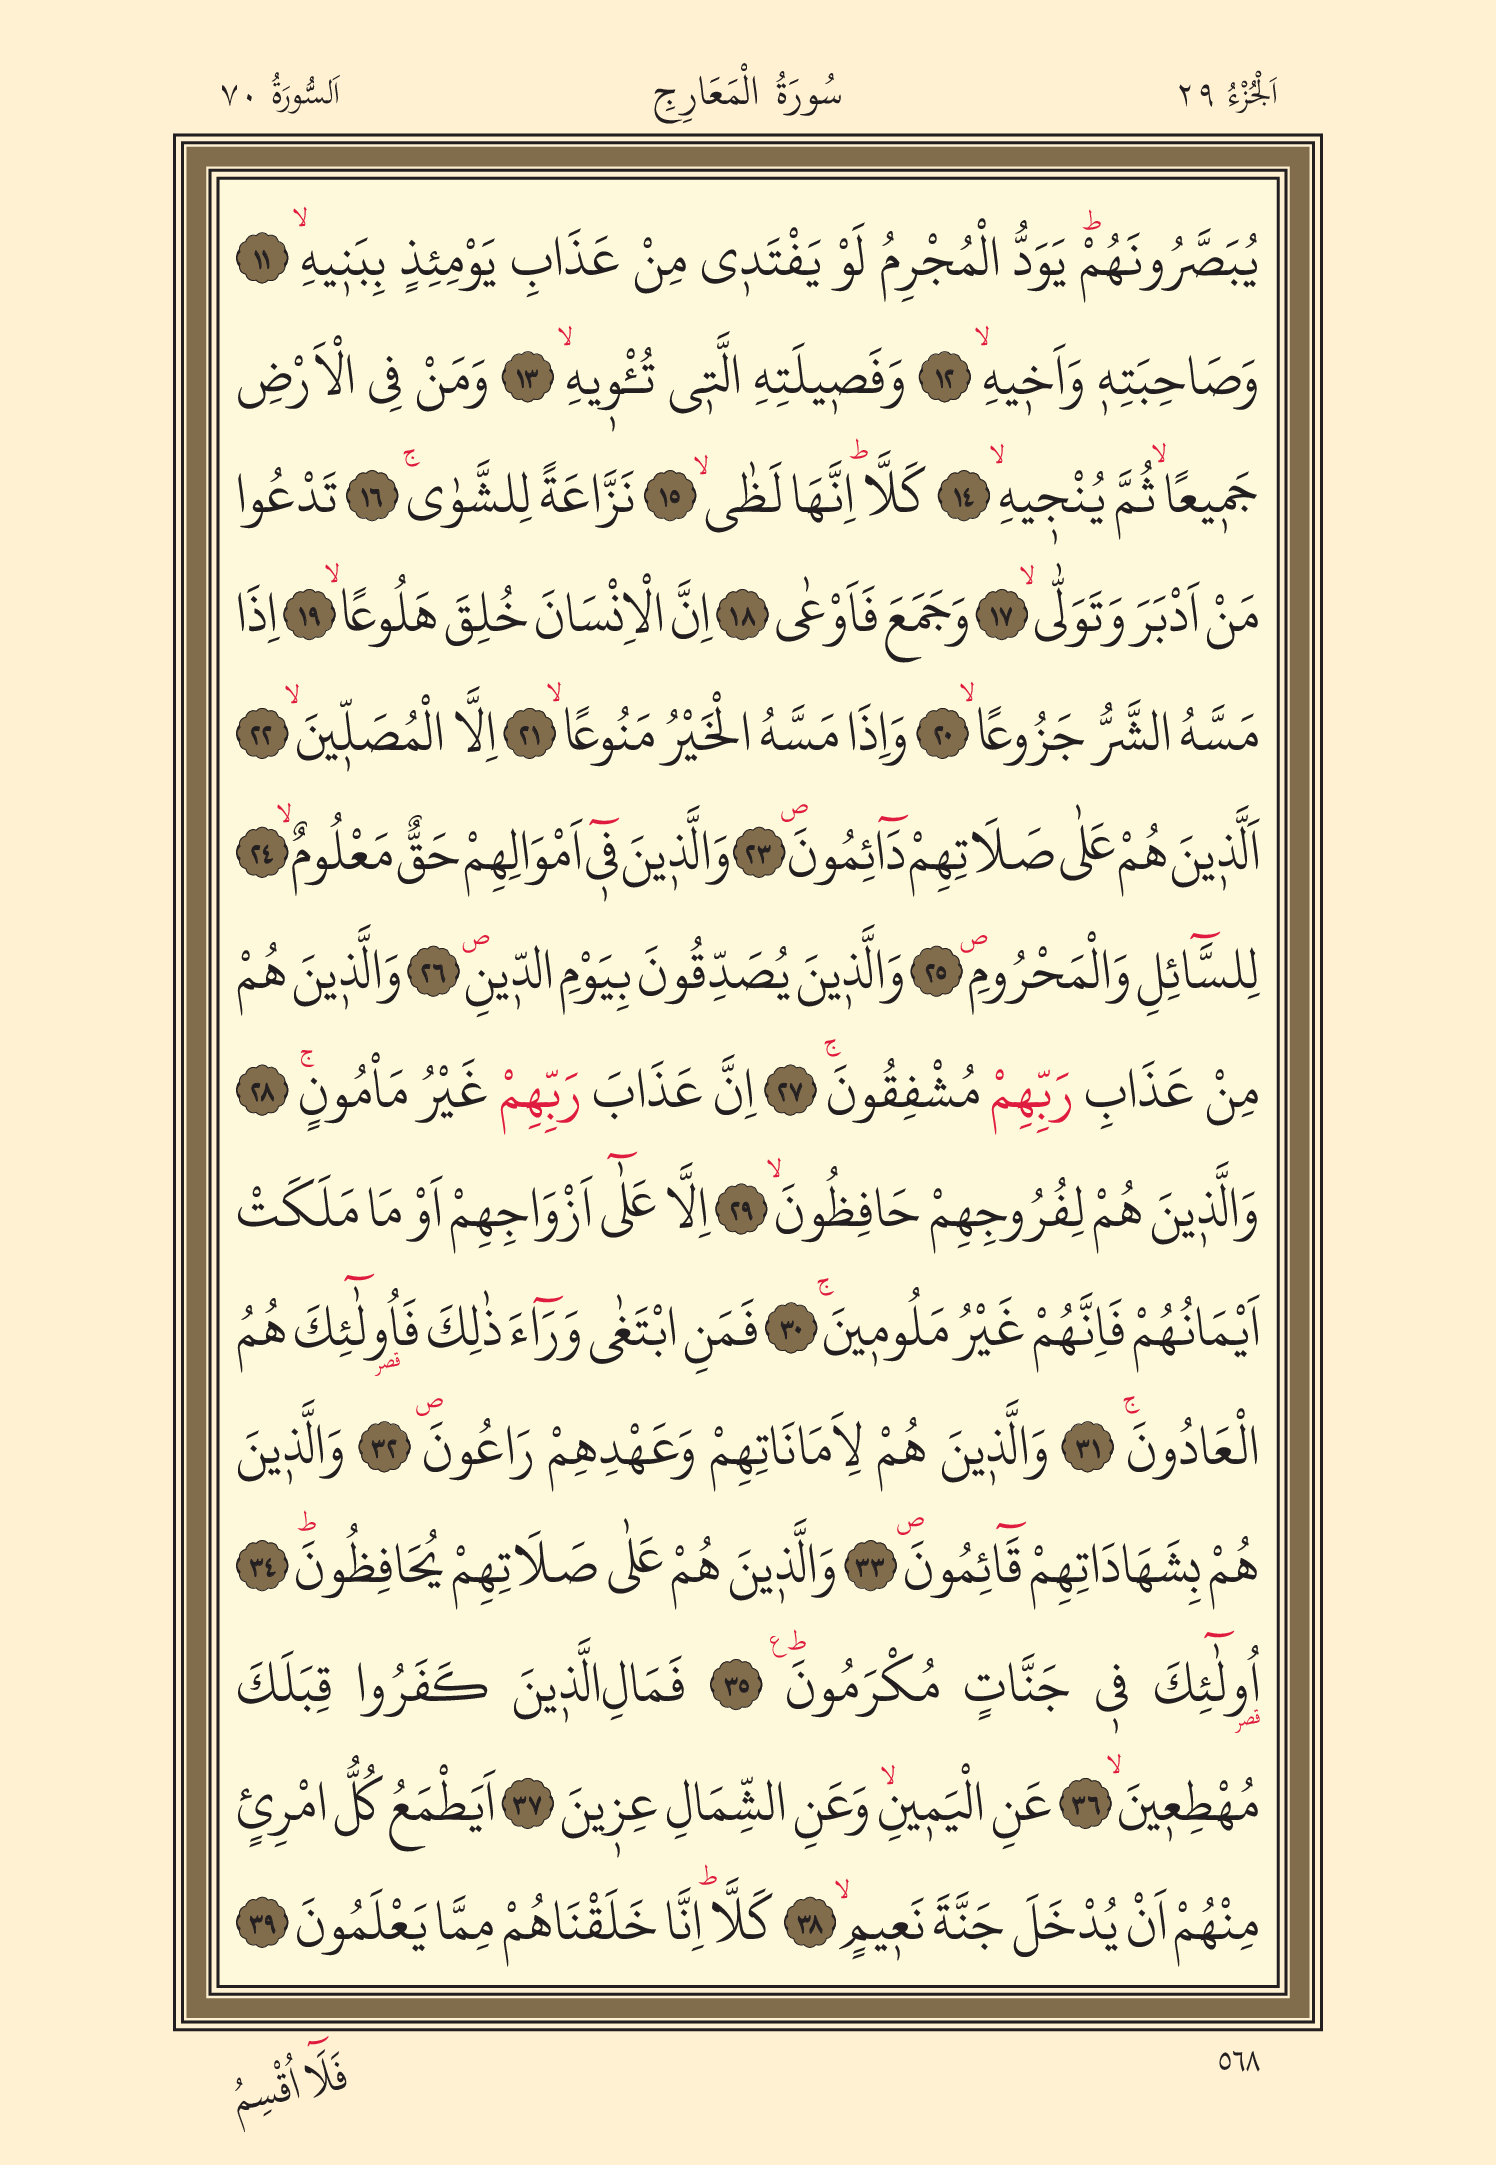 اَلْجُزْءُ ٢٩ سُورَةُ الْمَعَارِجِ اَلسُّورَةُ ٧٠
يُبَصَّرُونَهُمْۜ يَوَدُّ الْمُجْرِمُ لَوْ يَفْتَدٖى مِنْ عَذَابِ يَوْمِئِذٍ بِبَنٖيهِۙ ﴿١١﴾
وَصَاحِبَتِهٖ وَاَخٖيهِۙ ﴿١٢﴾ وَفَصٖيلَتِهِ الَّتٖى تُـْٔوٖيهِۙ ﴿١٣﴾ وَمَنْ فِى الْاَرْضِ
جَمٖيعًاۙ ثُمَّ يُنْجٖيهِۙ ﴿١٤﴾ كَلَّاۜ اِنَّهَا لَظٰىۙ ﴿١٥﴾ نَزَّاعَةً لِلشَّوٰىۚ ﴿١٦﴾ تَدْعُوا
مَنْ اَدْبَرَ وَتَوَلّٰىۙ ﴿١٧﴾ وَجَمَعَ فَاَوْعٰى ﴿١٨﴾ اِنَّ الْاِنْسَانَ خُلِقَ هَلُوعًاۙ ﴿١٩﴾ اِذَا
مَسَّهُ الشَّرُّ جَزُوعًاۙ ﴿٢٠﴾ وَاِذَا مَسَّهُ الْخَيْرُ مَنُوعًاۙ ﴿٢١﴾ اِلَّا الْمُصَلّٖينَۙ ﴿٢٢﴾
اَلَّذٖينَ هُمْ عَلٰى صَلَاتِهِمْ دَٓائِمُونَۖ ﴿٢٣﴾ وَالَّذٖينَ فٖٓى اَمْوَالِهِمْ حَقٌّ مَعْلُومٌۙ ﴿٢٤﴾
لِلسَّٓائِلِ وَالْمَحْرُومِۖ ﴿٢٥﴾ وَالَّذٖينَ يُصَدِّقُونَ بِيَوْمِ الدّٖينِۖ ﴿٢٦﴾ وَالَّذٖينَ هُمْ
مِنْ عَذَابِ رَبِّهِمْ مُشْفِقُونَۚ ﴿٢٧﴾ اِنَّ عَذَابَ رَبِّهِمْ غَيْرُ مَاْمُونٍۚ ﴿٢٨﴾
وَالَّذٖينَ هُمْ لِفُرُوجِهِمْ حَافِظُونَۙ ﴿٢٩﴾ اِلَّا عَلٰٓى اَزْوَاجِهِمْ اَوْ مَا مَلَكَتْ
اَيْمَانُهُمْ فَاِنَّهُمْ غَيْرُ مَلُومٖينَۚ ﴿٣٠﴾ فَمَنِ ابْتَغٰى وَرَٓاءَ ذٰلِكَ فَاُولٰٓئِكَ هُمُ
قصر
الْعَادُونَۚ ﴿٣١﴾ وَالَّذٖينَ هُمْ لِاَمَانَاتِهِمْ وَعَهْدِهِمْ رَاعُونَۖ ﴿٣٢﴾ وَالَّذٖينَ
هُمْ بِشَهَادَاتِهِمْ قَٓائِمُونَۖ ﴿٣٣﴾ وَالَّذٖينَ هُمْ عَلٰى صَلَاتِهِمْ يُحَافِظُونَۜ ﴿٣٤﴾
اُولٰٓئِكَ فٖى جَنَّاتٍ مُكْرَمُونَۜ ع ﴿٣٥﴾ فَمَالِ الَّذٖينَ كَفَرُوا قِبَلَكَ
قصر
مُهْطِعٖينَۙ ﴿٣٦﴾ عَنِ الْيَمٖينِۙ وَعَنِ الشِّمَالِ عِزٖينَ ﴿٣٧﴾ اَيَطْمَعُ كُلُّ امْرِئٍ
مِنْهُمْ اَنْ يُدْخَلَ جَنَّةَ نَعٖيمٍۙ ﴿٣٨﴾ كَلَّاۜ اِنَّا خَلَقْنَاهُمْ مِمَّا يَعْلَمُونَ ﴿٣٩﴾
٥٦٨
فَلَٓا اُقْسِمُ